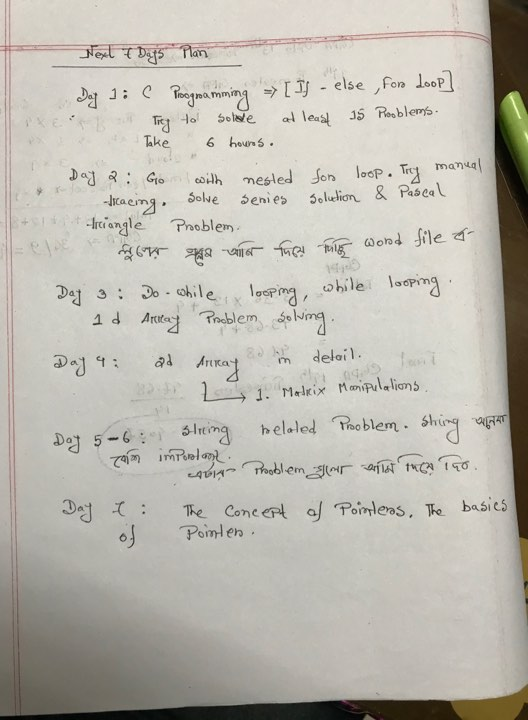 Next 7 Days Plan
Day 1: C Programming => [If - else, For Loop]
Try to solve at least 15 Problems.
Take 6 hours.
Day 2: Go with nested for loop. Try manual
tracing. Solve series solution & Pascal
triangle Problem.
লুপের প্রব্লেম আমি দিয়ে দিচ্ছি word file এ
Day 3: Do-while looping, while looping.
1d Array Problem solving.
Day 4: 2d Array in detail.
↳ 1. Matrix Manipulations.
Day 5-6: string related Problem. string
বেশি important. Problem গুলো আমি দিয়ে দিব.
Day 7: The Concept of Pointers. The basics
of Pointer.